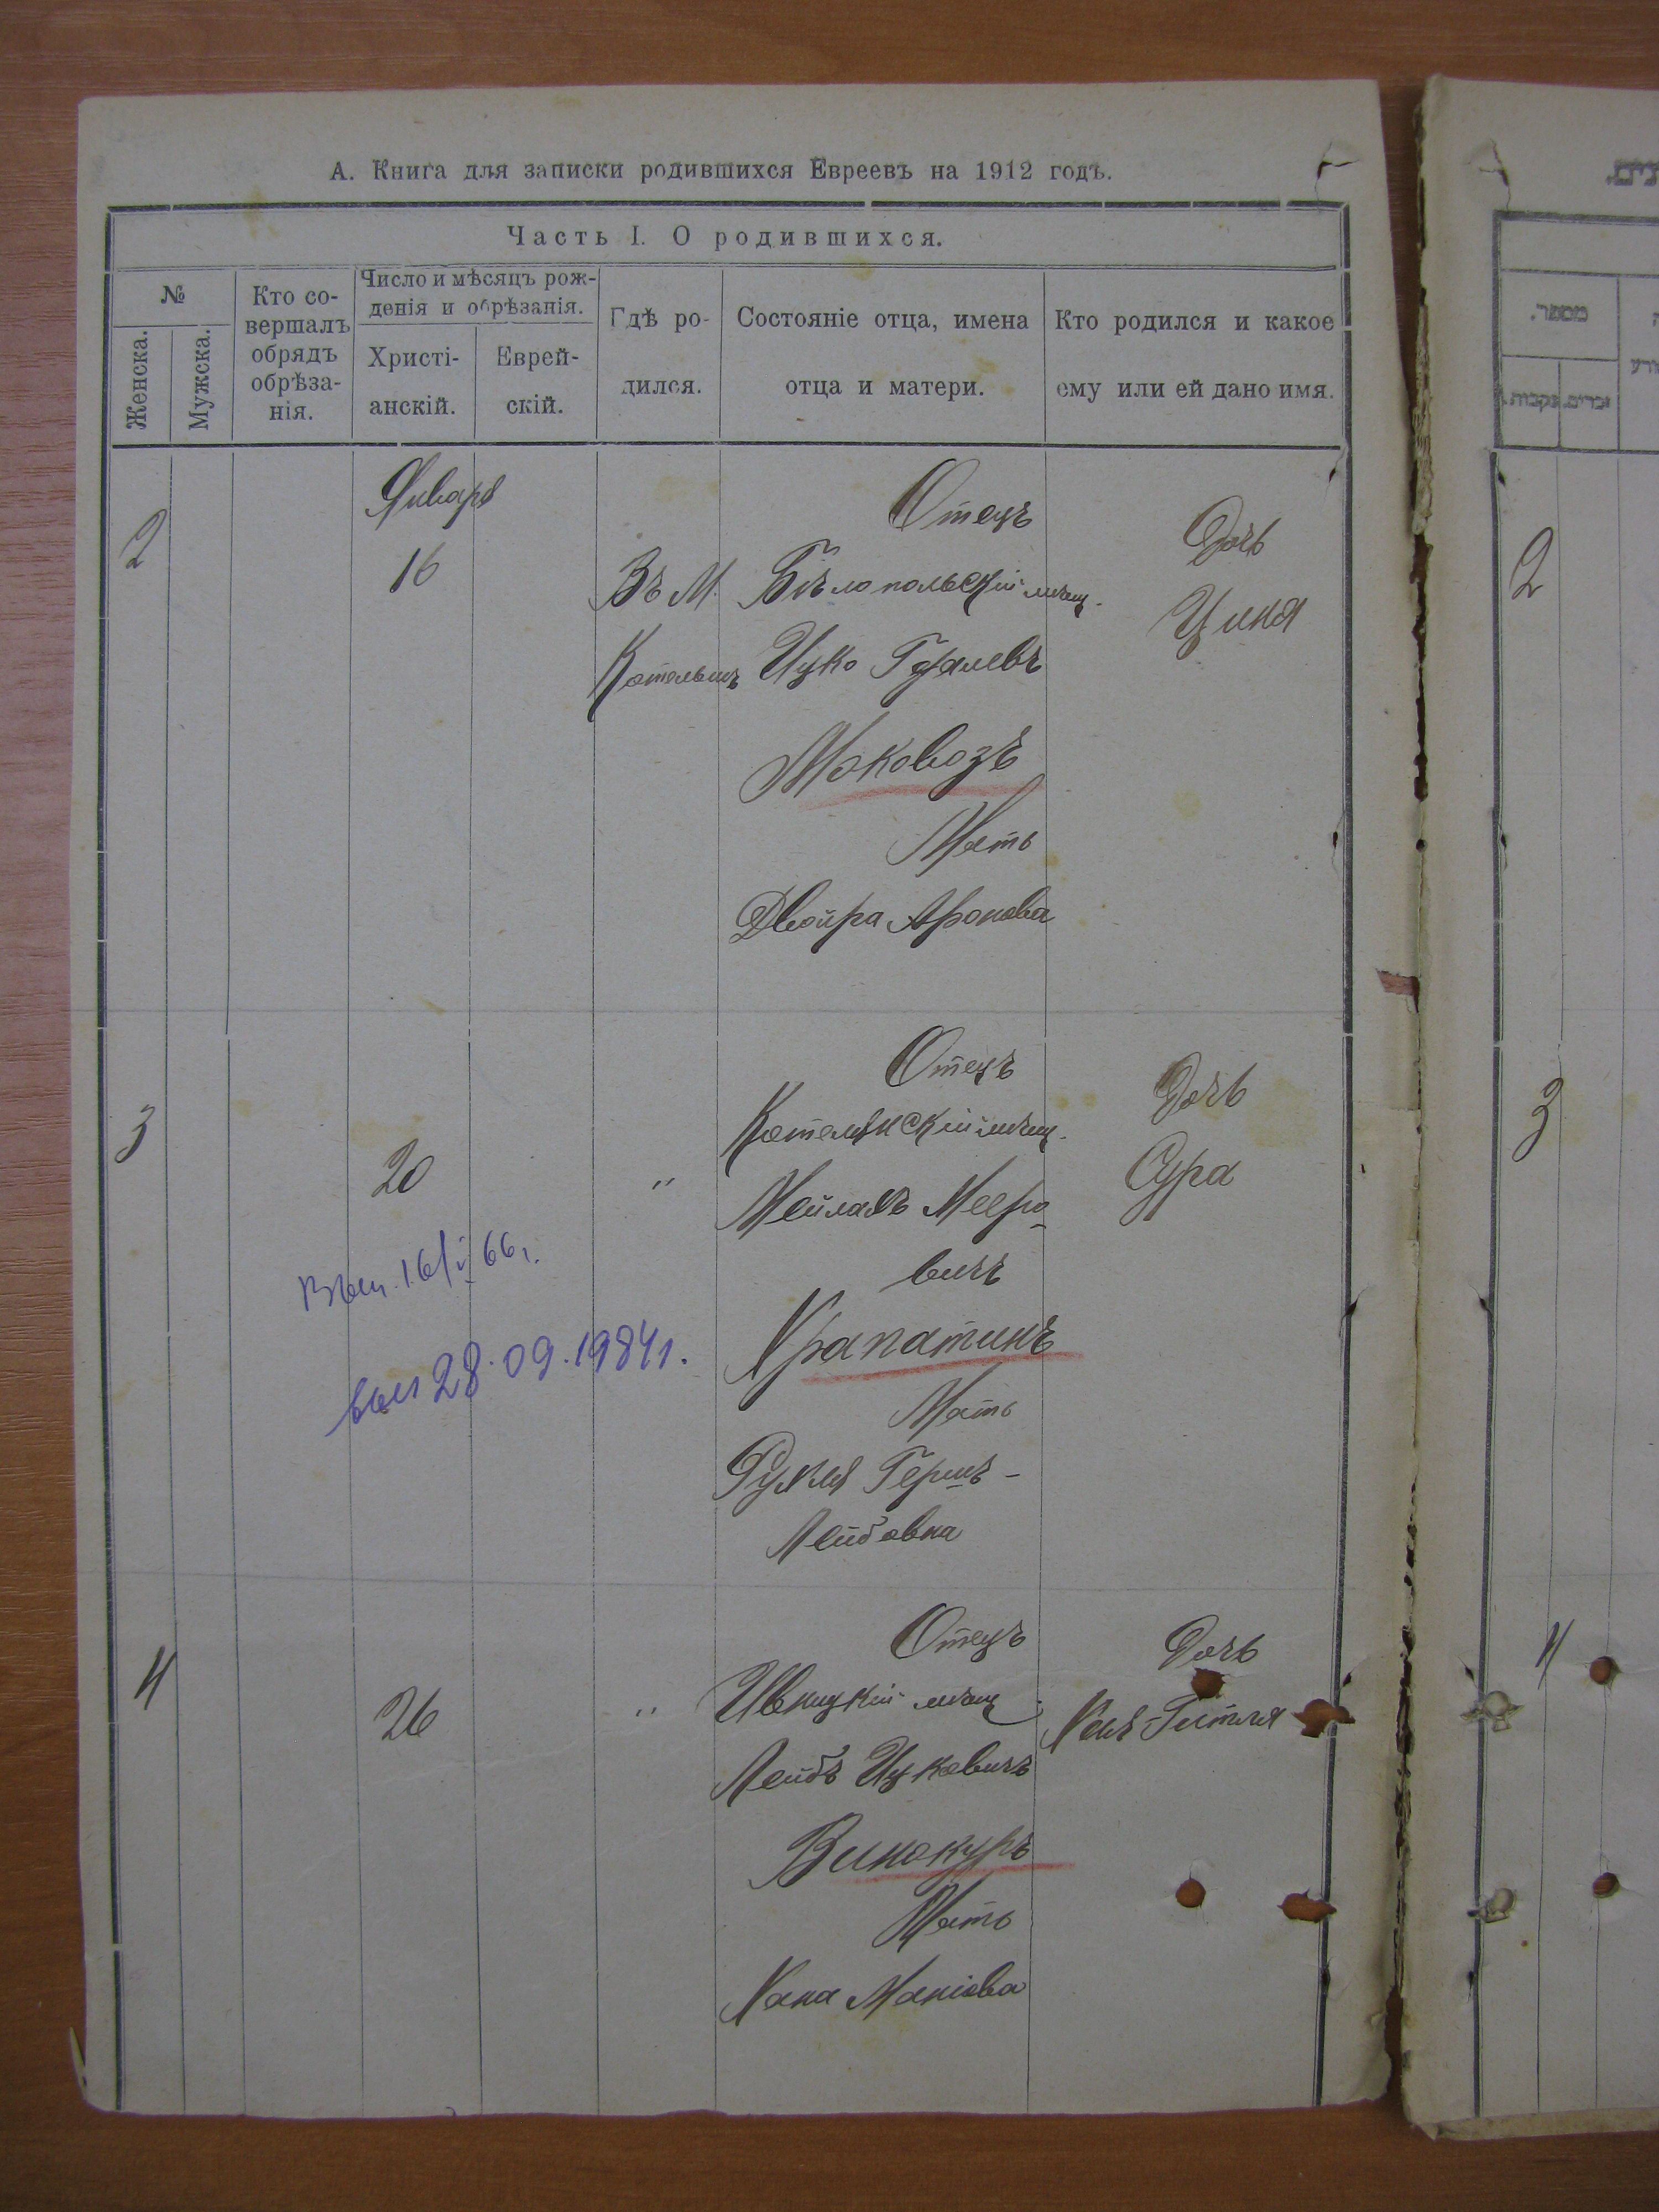 А. Книга для записки родившихся Евреевъ на 1912 годъ.
Часть I. О родившихся.
№
Женска.
Мужска.
Кто со-
вершалъ
обрядъ
обрѣза-
нія.
Число и мѣсяцъ рож-
денія и обрѣзанія.
Христі-
анскій.
Еврей-
скій.
Гдѣ ро-
дился.
Состояніе отца, имена
отца и матери.
Кто родился и какое
ему или ей дано имя.
2
Январь
16
Въ М.
Котельнъ
Отецъ
Бѣлопольскій мѣщ.
Ицко Гдалевъ
Моковозъ
Мать
Двойра Аронова
Дочь
Циня
3
20
"
Отецъ
Котельнскій мѣщ.
Мейлахъ Мееро-
вичъ
Крапатинъ
Мать
Рухля Гершъ-
Лейбовна
Дочь
Сура
16/I 66 г.
28.09.1984 г.
4
26
"
Отецъ
Ивницкій мѣщ.
Лейбъ Ицковичъ
Винокуръ
Мать
Хана Маніова
Дочь
Хая-Гитля
מספר.
נקבות.
זכרים.
2
3
4